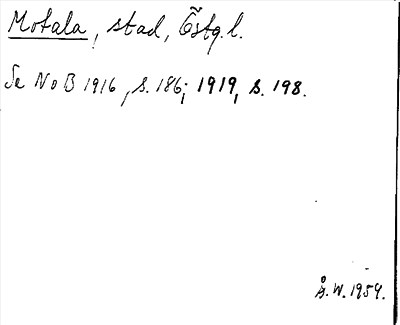 Motala, stad, Östg.l.
Se NoB 1916, s. 186; 1919, s. 198.
Å.W. 1959.